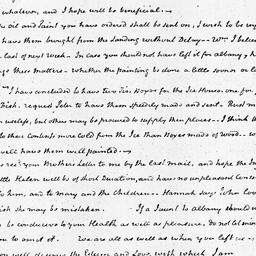 whatever, and I hope will be beneficial.
oil and Paint you have ordered shall be sent on, I wish to be
have them brought from the Landing without Delay — Wm. I
last of next week. In case you should not have left it for albany,
these matters — whether the painting be done a little sooner or
I have concluded to have two Tin Boxes for the Ice House. one for
Fish. request Peter to have them speedily made and sent. Rust
useless, but others may be procured to supply their places — I think
their Contents more cold from the Ice than Boxes made of wood —
well have them well painted —
your Brothers letter to me by the last mail, and hope the
little Helen will be of short Duration, and have no unpleasant
to him, and to Mary and the Children — Hannah Says John
she may be mistaken. — If a Jaunt to albany should
be conducive to your Health as well as pleasure, do not
of it. we are all as well as when you left us —
will deserve the Esteem and Love, with which I am